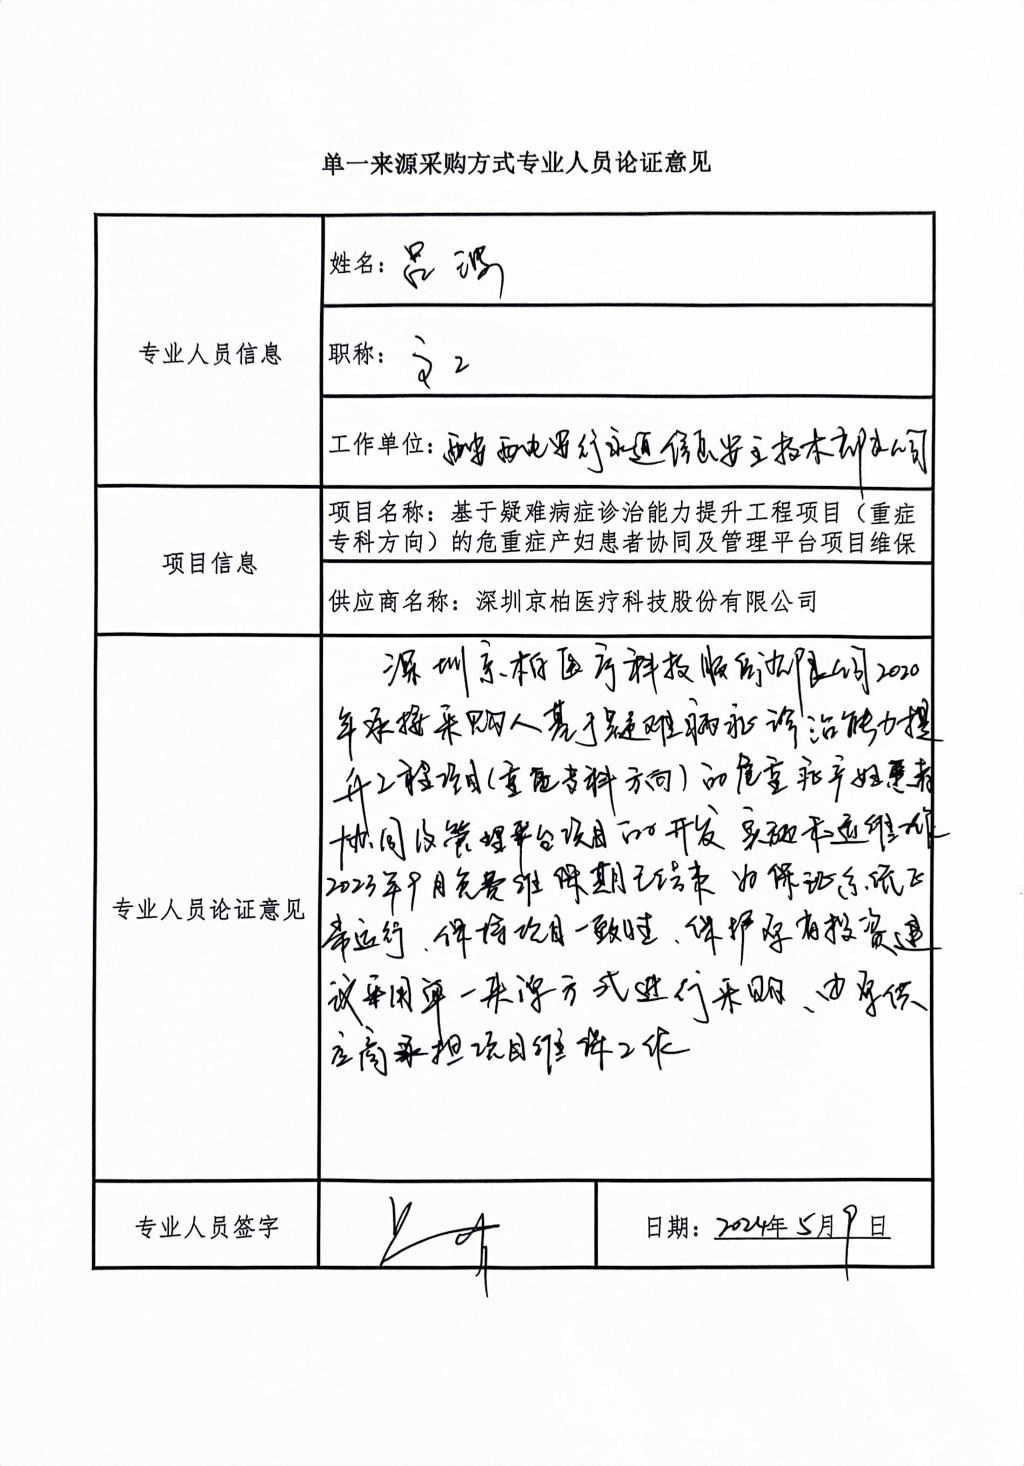 单一来源采购方式专业人员论证意见
专业人员信息
姓名：吕波
职称：高工
工作单位：西安西电捷行永道信息安全技术有限公司
项目信息
项目名称：基于疑难病症诊治能力提升工程项目（重症
专科方向）的危重症产妇患者协同及管理平台项目维保
供应商名称：深圳京柏医疗科技股份有限公司
专业人员论证意见
深圳京柏医疗科技股份有限公司2020
年承接采购人基于疑难病症诊治能力提
升工程项目(重症专科方向)的危重症产妇患者
协同及管理平台项目的开发实施和运维工作
2023年9月免费维保期已结束 为保证系统正
常运行、保持项目一致性、保护原有投资建
议采用单一来源方式进行采购、由原供
应商承担项目维保工作
专业人员签字
日期：2024年5月9日